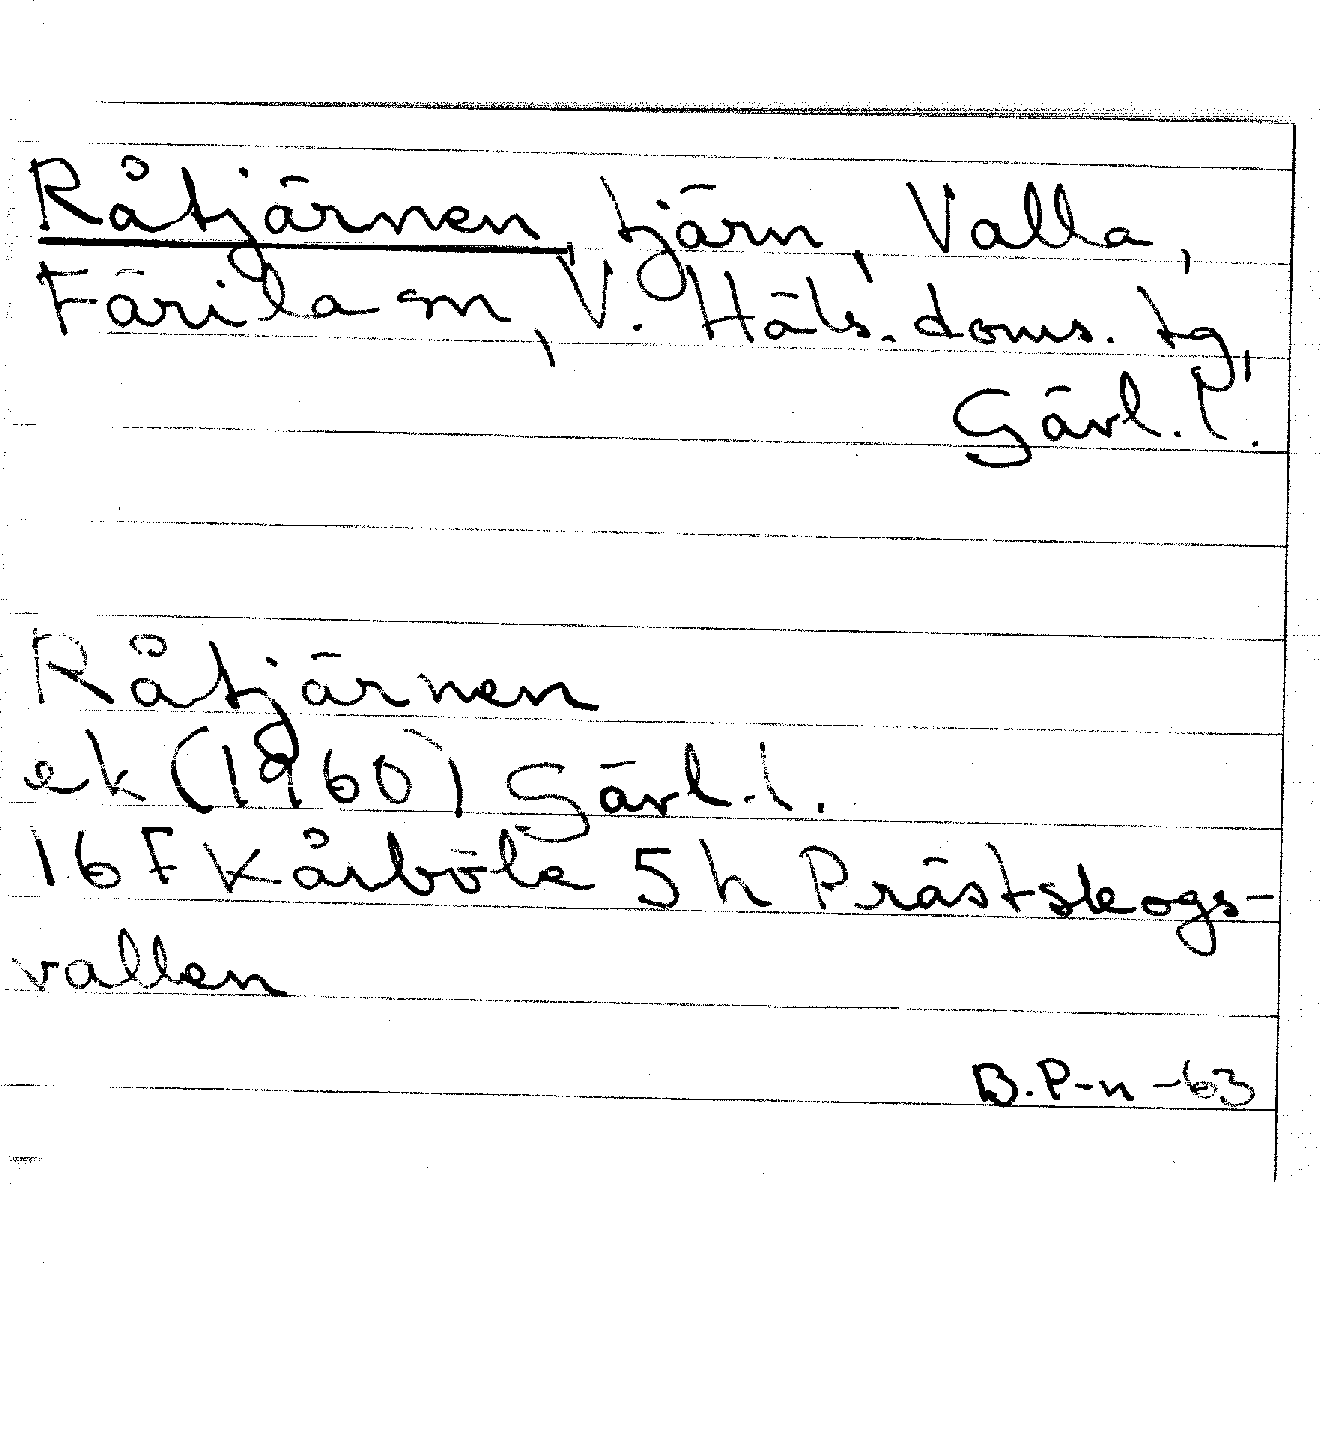 Råtjärnen, tjärn, Valla,
Färila sn, V. Häls. doms. tg,
Gävl. l.
Råtjärnen
ek (1960) Gävl. l.
16 F Kårböle 5 h Prästskogs-
vallen
B. P-n -63